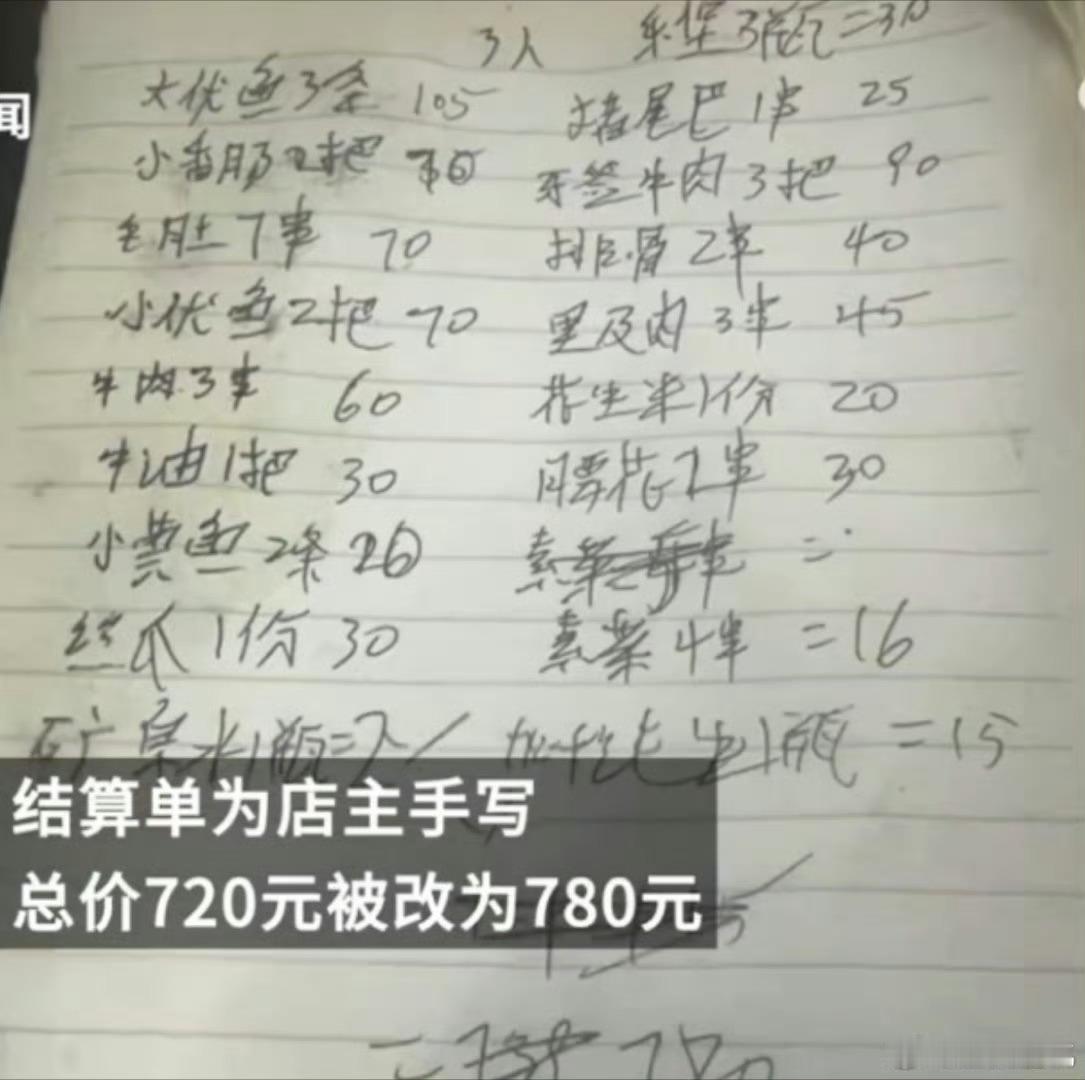 3人 乐堡3瓶=30
大优鱼3条 105 猪尾巴1串 25
闻
小香肠2把 牙签牛肉3把 90
毛肚7串 70 排骨2串 40
小优鱼2把 70 里及肉3串 45
牛肉3串 60 花生米1份 20
牛油1把 30 腰花2串 30
小黄鱼2条 26 素菜串 =
丝瓜1份 30 素菜4串 =16
矿泉水1瓶=2 1瓶 =15
结算单为店主手写
总价720元被改为780元
= 780